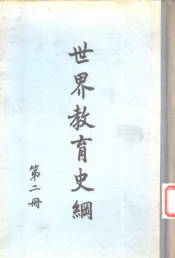 世界教育史綱
第二冊